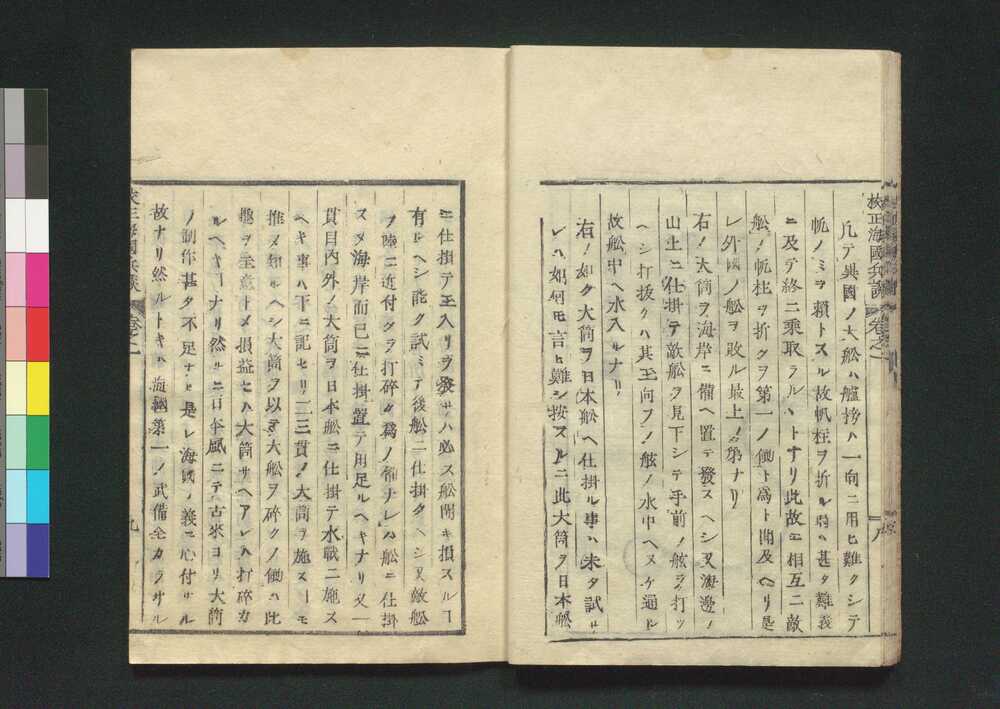 校正海國兵談
卷之一
凡テ異國ノ大舩ハ艫拷ハ一向ニ用ヒ難クシテ
帆ノミヲ頼トスル故帆柱ヲ折ル時ハ甚タ難義
ニ及テ終ニ乗取ラルヽトナリ此故ニ相互ニ敵
舩ノ帆柱ヲ折クヲ第一ノ働ト爲ト聞及ヘリ是
レ外國ノ舩ヲ敗ル最上ノ策ナリ
右ノ大筒ヲ海岸ニ備ヘ置テ發スヘシ又海邊ノ
山上ニ仕掛テ敵舩ヲ見下シテ手前ノ舷ヲ打ツ
ヘシ打抜クハ其玉向フノ舷ノ水中ヘヌケ通ル
故舩中ヘ水入ルナリ
右ノ如ク大筒ヲ日本舩ヘ仕掛ル事ハ未タ試ル
ハ如何モ言ヒ難シ按スルニ此大筒ヲ日本舩
ニ仕掛テ玉入リヲ發サハ必ス舩聞キ損スルヿ
有ルヘシ能ク試ミテ後舩ニ仕掛クヘシ又敵舩
ヲ陸ニ近付クヲ打碎ク爲ノ備ナレハ舩ニ仕掛
スメ海岸而已ニ仕掛置テ用足ルヘキナリ又一
貫目内外ノ大筒ヲ日本舩ニ仕掛テ水戰ニ施ス
ヘキ事ハ下ニ記セリ二三貫ノ大筒ヲ施スヿモ
推メ知ルヘシ大筒ヲ以テ大舩ヲ碎クノ働ハ此
趣ヲ至意トメ損益セハ大筒サヘアレハ打碎カ
ルヘキヿナリ然ルニ日本風ニテ古來ヨリ大筒
ノ制作甚タ不足ナヒ是レ海國ノ義ニ心付サル
故ナリ然ルトキハ海國第一ノ武備全カラサル
校正海國兵談
卷之一
九